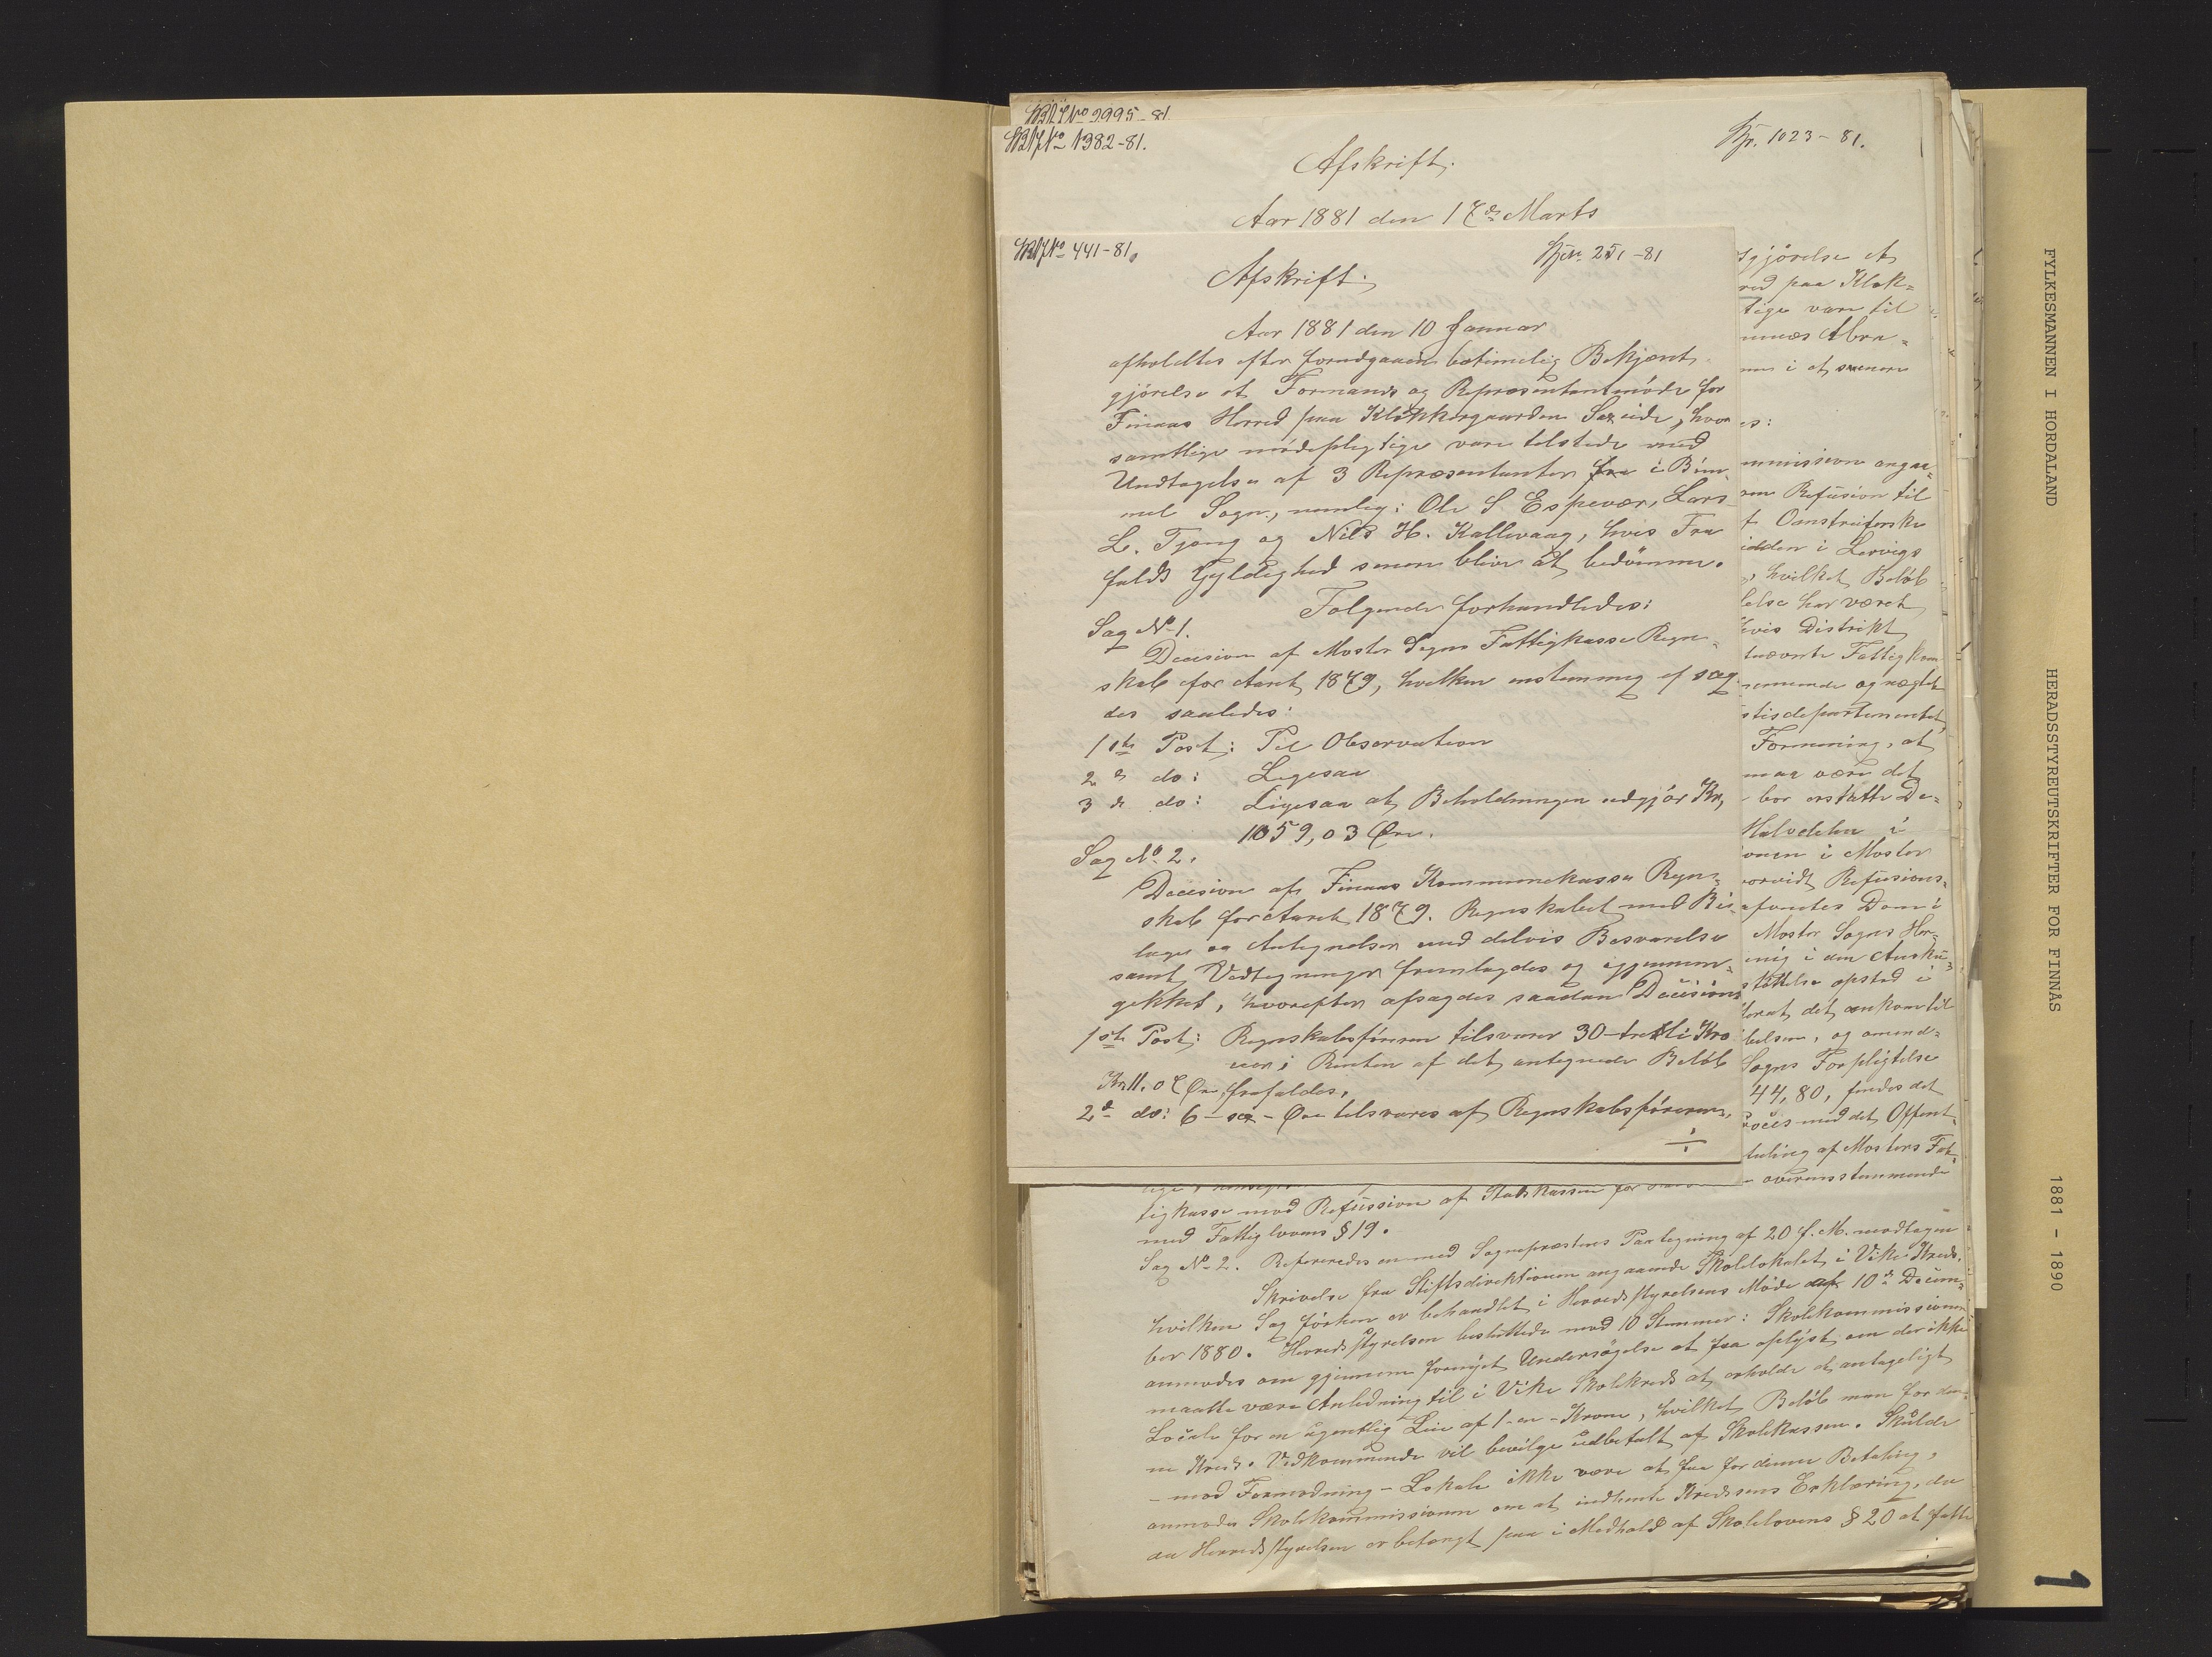 SBJNo 2995-81.
SBJNo 1382-81.
Kpr. 1023-81.
Afskrift.
Aar 1881 den 17de Marts
SBJNo 441-81.
Kpr. 251-81
Afskrift.
Aar 1881 den 10 Januar
afholdtes efter forudgaaen betimelig Bekjent
gjörelse et Formands og Repræsentantmöde for
Finaas Herred paa Klokkergaarden Sæeide, hvor
samtlige mödepligtige vare tilstede med
Undtagelse af 3 Repræsentanter fra i Böm
mel Sogn, nemlig: Ole S. Espevær, Lars
L. Tjong og Nils H. Kallevaag, hvis Fra
falds Gyldighed senere bliver at bedömme.
Følgende forhandledes:
Sag No 1.
Decision af Moster Sogns Fattigkasse Regn=
skab for Aaret 1879, hvilken enstemmig afsag
des saaledes:
1ste Post: Til Observation
2d do: Ligesaa
3de do: Ligesaa at Beholdningen udgjör Kr,
1059,03 Øre.
Sag No 2.
Decision af Finaas Kommunekasses Regn=
skab for Aaret 1879. Regnskabet med Bi=
lage og Antegnelser med delvis Besvarelse
samt Vedtegninger fremlagdes og igjennem=
gikkes, hvorefter afsagdes saadan Decision:
1ste Post: Regnskabsföreren tilsvarer 30-tretti Kro
ner i Renter af det antegnede Belöb
Kr 11.07 Øre frafaldes.
2d do: 6-sex-Øre tilsvares af Regnskabsföreren,
÷
gjörelse et
red paa Klok=
tige vare til
næs Abra=
mes i et senere
es:
mmission angaa=
om Refusion til
idden i Lervigs
, hvilket Belöb
lelse har været
hvis Distrikt
tnævnte Fattigkom
nemende og nægtet
stisdepartementet,
Formening, at
maa være det
bor erstatte De=
Halvdelen i
onen i Moster
orvidt Refusions=
afventes Dom i
Moster Sogns Her=
enig i den Ansku=
töttelse opstod i
lerat det ankom til
belsen, og omend=
Sogns Forpligtelse
44,80, findes det
roces med det Offent=
taling af Mosters Fat=
overensstemmende
tigkasse mod Refussion af Statskassen for
med Fattiglovens § 19.
Sag No 2. Refereredes en med Sogneprestens Paategning af 20 f. M. modtagen
Skrivelse fra Stiftsdirektionen angaaende Skolelokalet i Vike Kreds,
hvilken Sag förhen er behandlet i Herredsstyrelsens Möde af 10de Decem=
ber 1880. Herredsstyrelsen besluttede med 10 Stemmer: Skolekommissionen
anmodes om gjennem fornyet Undersögelse at faa oplyst om der ikke
maatte være Anledning til i Vike Skolekreds at erholde et antageligt
Locale for en ugentlig Leie af 1-en-Krone, hvilket Belöb man for den=
ne Kreds. Vedkommende vil bevilge udbetalt af Skolekassen. Skulde
- mod Formodning - Lokale ikke være at faa for denne Betaling,
anmodes Skolekommissionen om at indhente Kredsens Erklæring, da
da Herredsstyrelsen er betænkt paa i Medhold af Skolelovens § 20 at fatte
FYLKESMANNEN I HORDALAND
HERADSSTYREUTSKRIFTER FOR FINNÅS
1881 - 1890
1